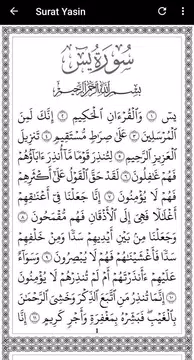 Surat Yasin
سُورَةُ يسٓ
بِسْمِ اللَّهِ الرَّحْمَٰنِ الرَّحِيمِ
يسٓ ۝١ وَالْقُرْءَانِ الْحَكِيمِ ۝٢ إِنَّكَ لَمِنَ
الْمُرْسَلِينَ ۝٣ عَلَىٰ صِرَٰطٍ مُّسْتَقِيمٍ ۝٤ تَنزِيلَ
الْعَزِيزِ الرَّحِيمِ ۝٥ لِتُنذِرَ قَوْمًا مَّا أُنذِرَ ءَابَاؤُهُمْ
فَهُمْ غَٰفِلُونَ ۝٦ لَقَدْ حَقَّ الْقَوْلُ عَلَىٰ أَكْثَرِهِمْ
فَهُمْ لَا يُؤْمِنُونَ ۝٧ إِنَّا جَعَلْنَا فِي أَعْنَٰقِهِمْ
أَغْلَٰلًا فَهِيَ إِلَى الْأَذْقَانِ فَهُم مُّقْمَحُونَ ۝٨
وَجَعَلْنَا مِن بَيْنِ أَيْدِيهِمْ سَدًّا وَمِنْ خَلْفِهِمْ
سَدًّا فَأَغْشَيْنَٰهُمْ فَهُمْ لَا يُبْصِرُونَ ۝٩ وَسَوَاءٌ
عَلَيْهِمْ ءَأَنذَرْتَهُمْ أَمْ لَمْ تُنذِرْهُمْ لَا يُؤْمِنُونَ
۝١٠ إِنَّمَا تُنذِرُ مَنِ اتَّبَعَ الذِّكْرَ وَخَشِيَ الرَّحْمَٰنَ
بِالْغَيْبِ فَبَشِّرْهُ بِمَغْفِرَةٍ وَأَجْرٍ كَرِيمٍ ۝١١ إِنَّا